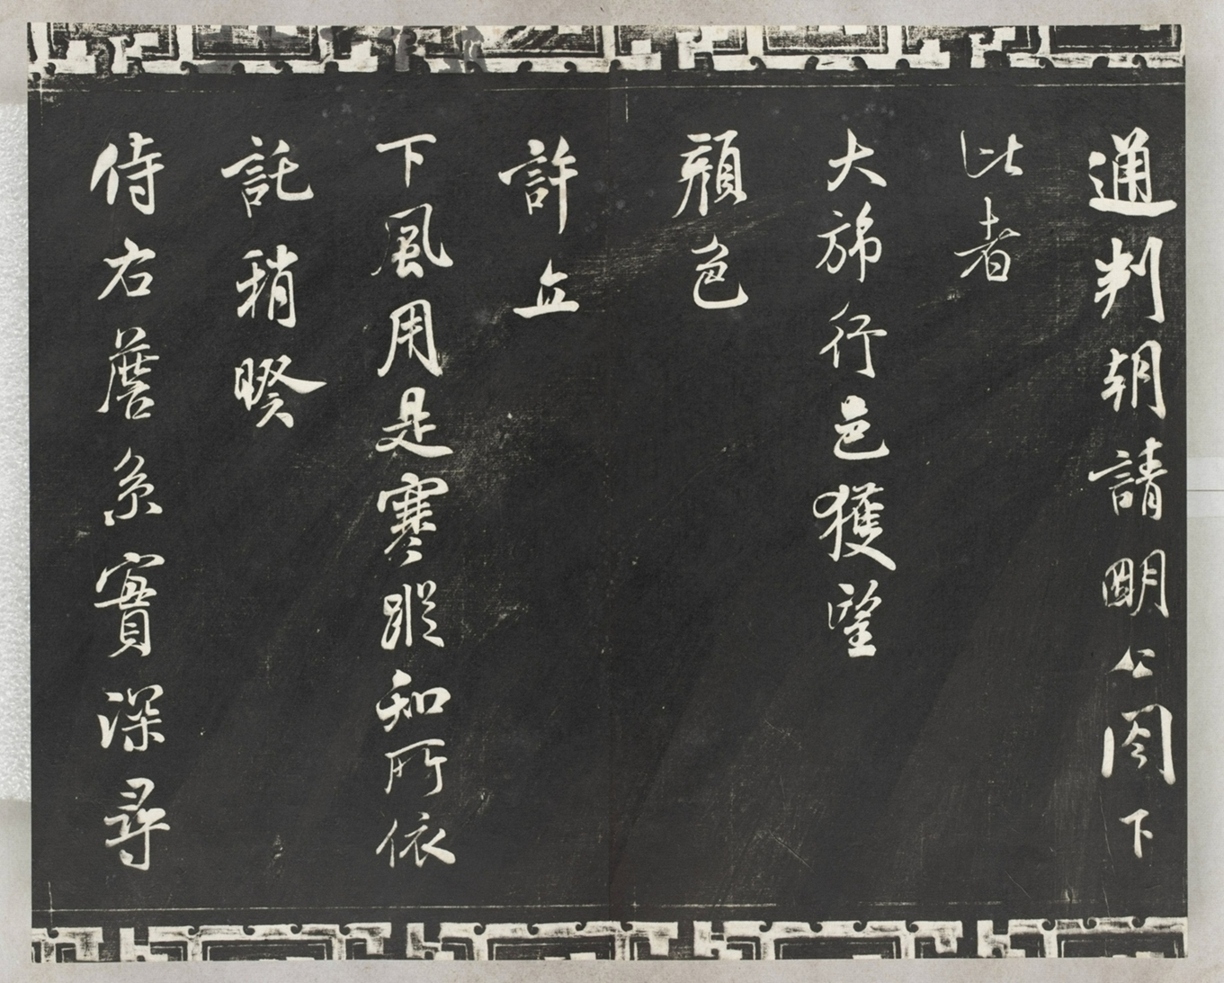 通判朝請明公閤下
比者
大旆行邑獲望
顏色
許立
下風用是寒蹤知所依
託稍睽
侍右舊系實深尋